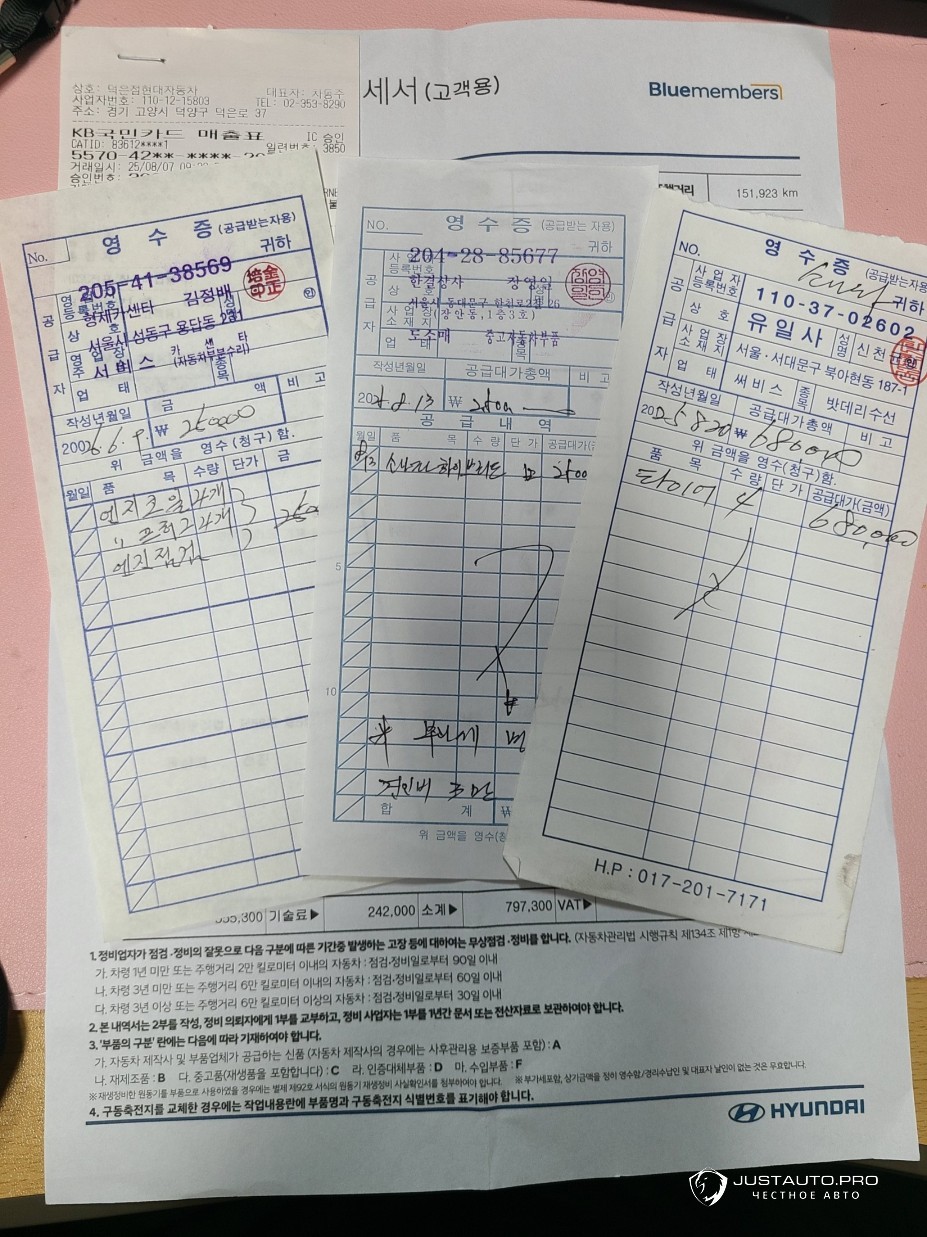 상호: 덕은점현대자동차 대표자: 자동주
사업자번호: 110-12-15803 TEL: 02-353-8290
주소: 경기 고양시 덕양구 덕은로 37
KB국민카드 매출표 IC 승인
CATID: 83612****1 일련번호: 3850
5570-42**-****-
거래일시: 25/08/07
승인번호:
세서 (고객용)
Bluemembers
151,923 km
영 수 증 (공급받는자용)
No. 귀하
205-41-38569
형제카센타 김정배
서울시 성동구 용답동 231
카 센 타
서비스 (자동차부분수리)
작성년월일 금 액 비 고
₩ 250000
위 금액을 영수(청구)함.
월일 품 목 수량 단가 금
엔진오일 2개
엔진점검
NO. 영 수 증 (공급받는 자용)
귀하
204-28-85677
한결상사
(장안동,1층3호)
도소매 중고자동차부품
작성년월일 공급대가총액 비 고
8. 13 ₩
공 급 내 역
월일 품 목 수 량 단 가
8/13 소나타 하이브리드
5
10
합 계 ₩
위 금액을 영수(청
NO. 영 수 증 (공급받는자용)
귀하
사업자등록번호 110-37-02602
상 호 유일사 성명
사업장소재지 서울·서대문구 북아현동 187-1
업 태 써비스 종목 밧데리수선
작성년월일 공급대가총액 비 고
2025 8 20 ₩ 680000
위 금액을 영수(청구)함.
품 목 수 량 단 가 공급대가(금액)
타이어 4 680,000
H.P : 017-201-7171
기술료▶ 242,000 소계▶ 797,300 VAT▶
1. 정비업자가 점검·정비의 잘못으로 다음 구분에 따른 기간중 발생하는 고장 등에 대하여는 무상점검·정비를 합니다. (자동차관리법 시행규칙 제134조 제1항
가. 차령 1년 미만 또는 주행거리 2만 킬로미터 이내의 자동차 : 점검·정비일로부터 90일 이내
나. 차령 3년 미만 또는 주행거리 6만 킬로미터 이내의 자동차 : 점검·정비일로부터 60일 이내
다. 차령 3년 이상 또는 주행거리 6만 킬로미터 이상의 자동차 : 점검·정비일로부터 30일 이내
2. 본 내역서는 2부를 작성, 정비 의뢰자에게 1부를 교부하고, 정비 사업자는 1부를 1년간 문서 또는 전산자료로 보관하여야 합니다.
3. '부품의 구분' 란에는 다음에 따라 기재하여야 합니다.
가. 자동차 제작사 및 부품업체가 공급하는 신품 (자동차 제작사의 경우에는 사후관리용 보증부품 포함) : A
나. 재제조품 : B 다. 중고품(재생품을 포함합니다) : C 라. 인증대체부품 : D 마. 수입부품 : F
※ 재생정비한 원동기를 부품으로 사용하였을 경우에는 별제 제92호 서식의 원동기 재생정비 사실확인서를 첨부하여야 합니다. ※ 부가세포함, 상기금액을 정히 영수함/경리수납인 및 대표자 날인이 없는 것은 무효합니다.
4. 구동축전지를 교체한 경우에는 작업내용란에 부품명과 구동축전지 식별번호를 표기해야 합니다.
HYUNDAI
JUSTAUTO.PRO
ЧЕСТНОЕ АВТО